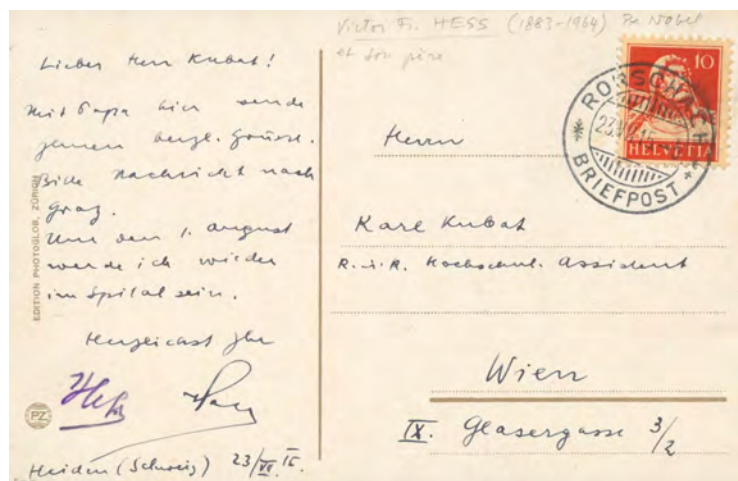 Victor Fr. HESS (1883-1964) Px Nobel
et son père
Lieber Herr Kubat!
Mit Papa hier sende
Ihnen herzl. Grüsse.
Bitte Nachricht nach
Graz.
Um den 1. August
werde ich wieder
im Spital sein.
Herzlichst Ihr
Hess
Heiden (Schweiz) 23/VII
EDITION PHOTOGLOB, ZÜRICH
PZ
10
HELVETIA
RORSCHACH
BRIEFPOST
Herrn
Karl Kubat
K. u. K. Hochschul. Assistent
Wien
IX. Glasergasse 3/2